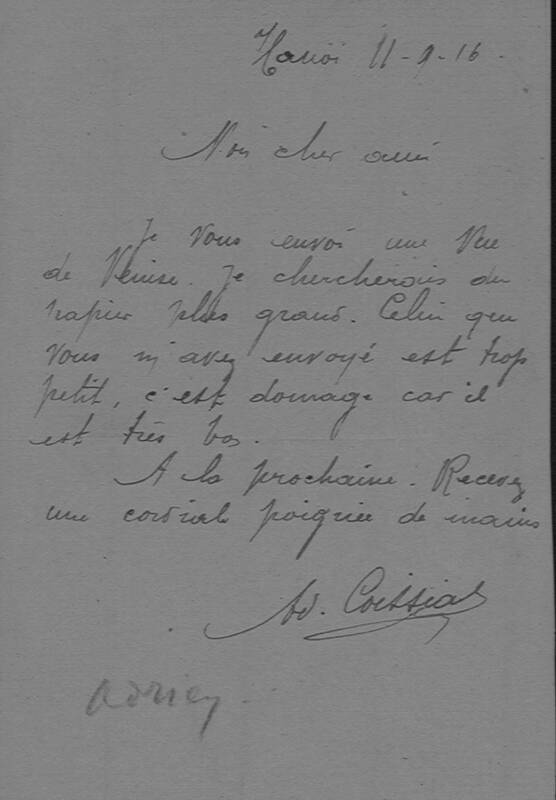 Hanoï 11-9-16.
Mon cher ami
Je vous envoi une Vue
de Venise. Je chercherais du
papier plus grand. Celui que
vous m'avez envoyé est trop
petit, c'est domage car il
est très bon.
A la prochaine. Recevez
une cordiale poignée de mains
Ad.
Adrien